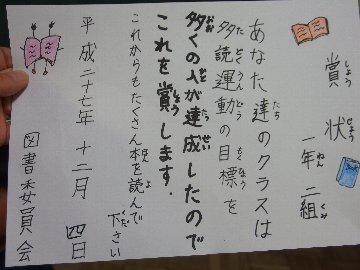 賞状
一年二組
あなた達のクラスは
多読運動の目標を
多くの人が達成したので
これを賞します.
これからもたくさん本を読んで
下さい
平成二十七年 十二月 四日
図書委員会